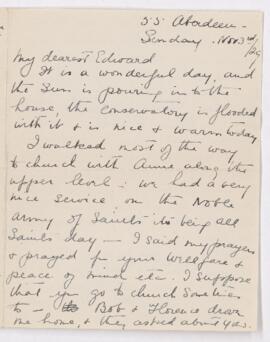 55 Aberdeen -
Sunday. Nov 3rd/29
My dearest Edward
It is a wonderful day, and
the Sun is pouring in to the
house, the conservatory is flooded
with it & is nice & warm today
I walked most of the way
to church with Annie along the
upper level : we had a very
nice service on the Noble
Army of Saints its being all
Saints day — I said my prayers
& prayed for your Wellfare &
peace of mind etc. I suppose
that you go to church Sometimes
to — Bob & Florence drove
me home, & they asked about you.